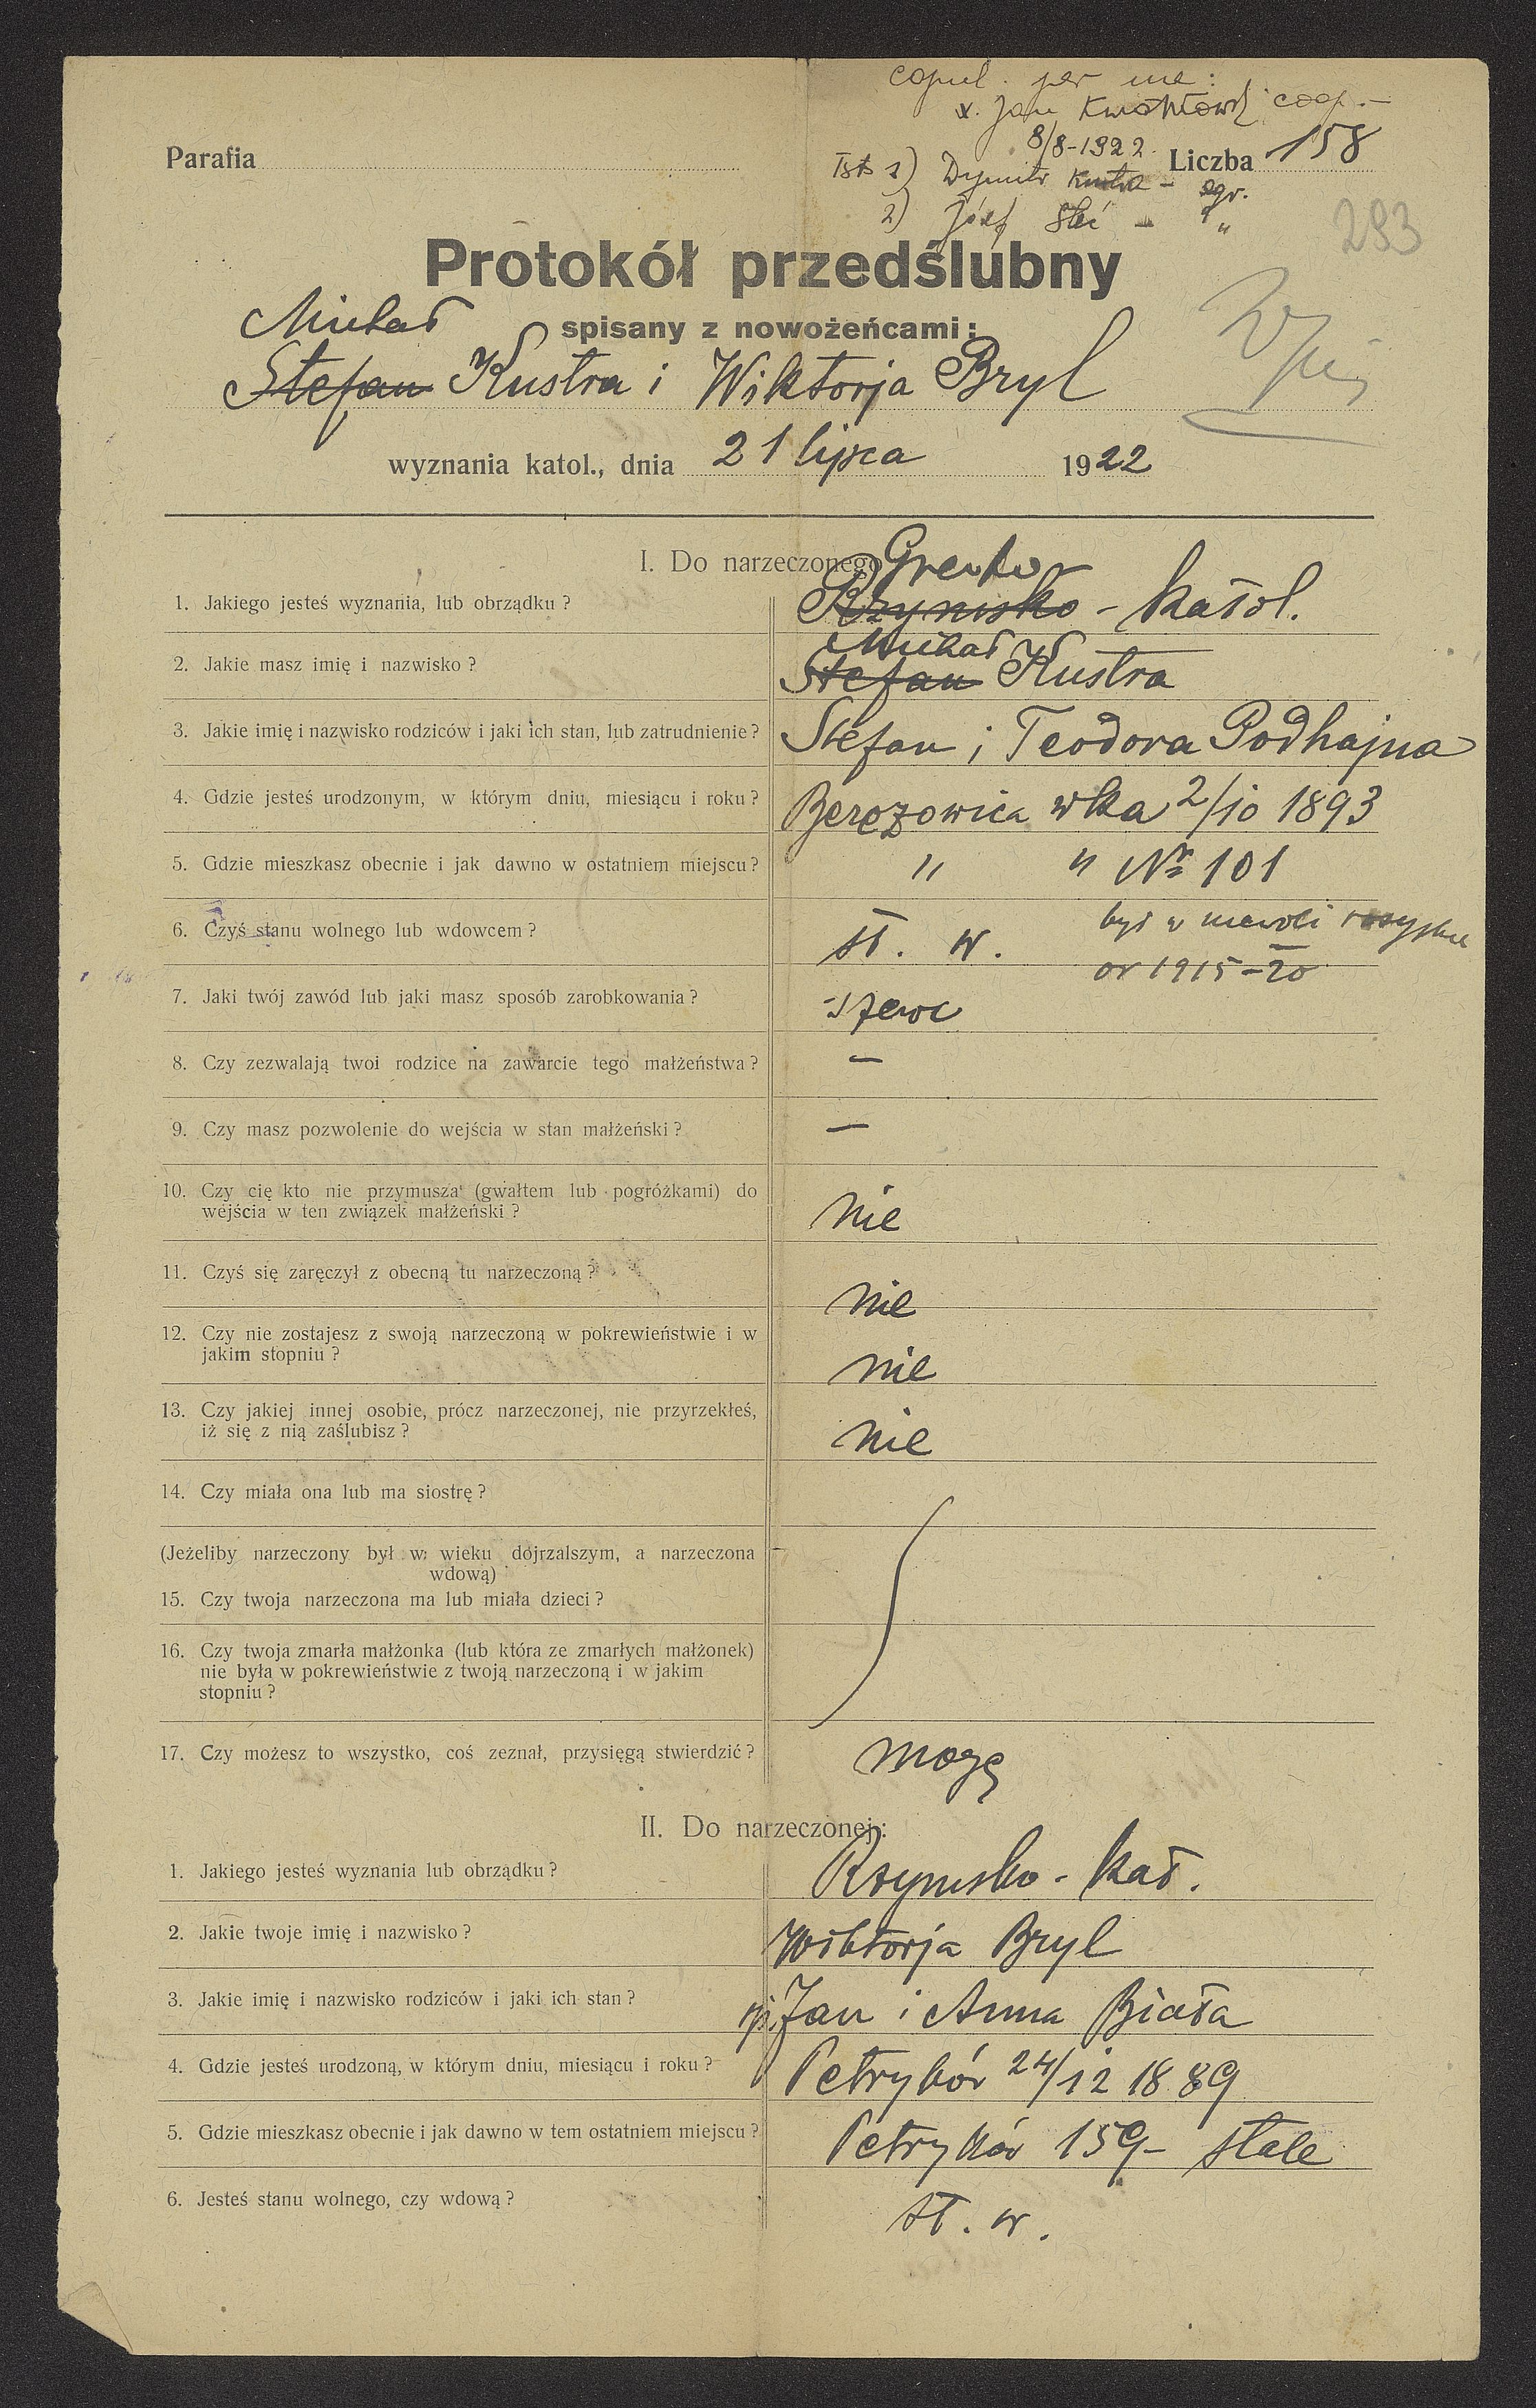 copul. per me:
x. Jan Kwiatkowski coop. –
8/8-1922
Parafia
Liczba 158
Tsts 1) Dymitr Kustra – agr.
2) Józef – "
293
Protokół przedślubny
Michał
spisany z nowożeńcami:
Stefan Kustra i Wiktorja Bryl
wyznania katol., dnia 21 lipca 1922
I. Do narzeczonego
Grecko
1. Jakiego jesteś wyznania, lub obrządku ? Rzymsko - katol.
Michał
2. Jakie masz imię i nazwisko ? Stefan Kustra
3. Jakie imię i nazwisko rodziców i jaki ich stan, lub zatrudnienie ? Stefan i Teodora Podhajna
4. Gdzie jesteś urodzonym, w którym dniu, miesiącu i roku ? Berezowica wka 2/10 1893
5. Gdzie mieszkasz obecnie i jak dawno w ostatniem miejscu ? " " № 101
był w niewoli rosyjskiej
6. Czyś stanu wolnego lub wdowcem ? st. w.
od 1915-20
7. Jaki twój zawód lub jaki masz sposób zarobkowania ? szewc
8. Czy zezwalają twoi rodzice na zawarcie tego małżeństwa ? –
9. Czy masz pozwolenie do wejścia w stan małżeński ? –
10. Czy cię kto nie przymusza (gwałtem lub pogróżkami) do
wejścia w ten związek małżeński ? nie
11. Czyś się zaręczył z obecną tu narzeczoną ? nie
12. Czy nie zostajesz z swoją narzeczoną w pokrewieństwie i w
jakim stopniu ? nie
13. Czy jakiej innej osobie, prócz narzeczonej, nie przyrzekłeś,
iż się z nią zaślubisz ? nie
14. Czy miała ona lub ma siostrę ?
(Jeżeliby narzeczony był w wieku dojrzalszym, a narzeczona
wdową)
15. Czy twoja narzeczona ma lub miała dzieci ?
16. Czy twoja zmarła małżonka (lub która ze zmarłych małżonek)
nie była w pokrewieństwie z twoją narzeczoną i w jakim
stopniu ?
17. Czy możesz to wszystko, coś zeznał, przysięgą stwierdzić ? mogę
II. Do narzeczonej:
1. Jakiego jesteś wyznania lub obrządku ? Rzymsko - kat.
2. Jakie twoje imię i nazwisko ? Wiktorja Bryl
3. Jakie imię i nazwisko rodziców i jaki ich stan ? Jan i Anna Biała
4. Gdzie jesteś urodzoną, w którym dniu, miesiącu i roku ? Petryków 24/12 1889
5. Gdzie mieszkasz obecnie i jak dawno w tem ostatniem miejscu ? Petryków 159 – stale
6. Jesteś stanu wolnego, czy wdową ? st. w.